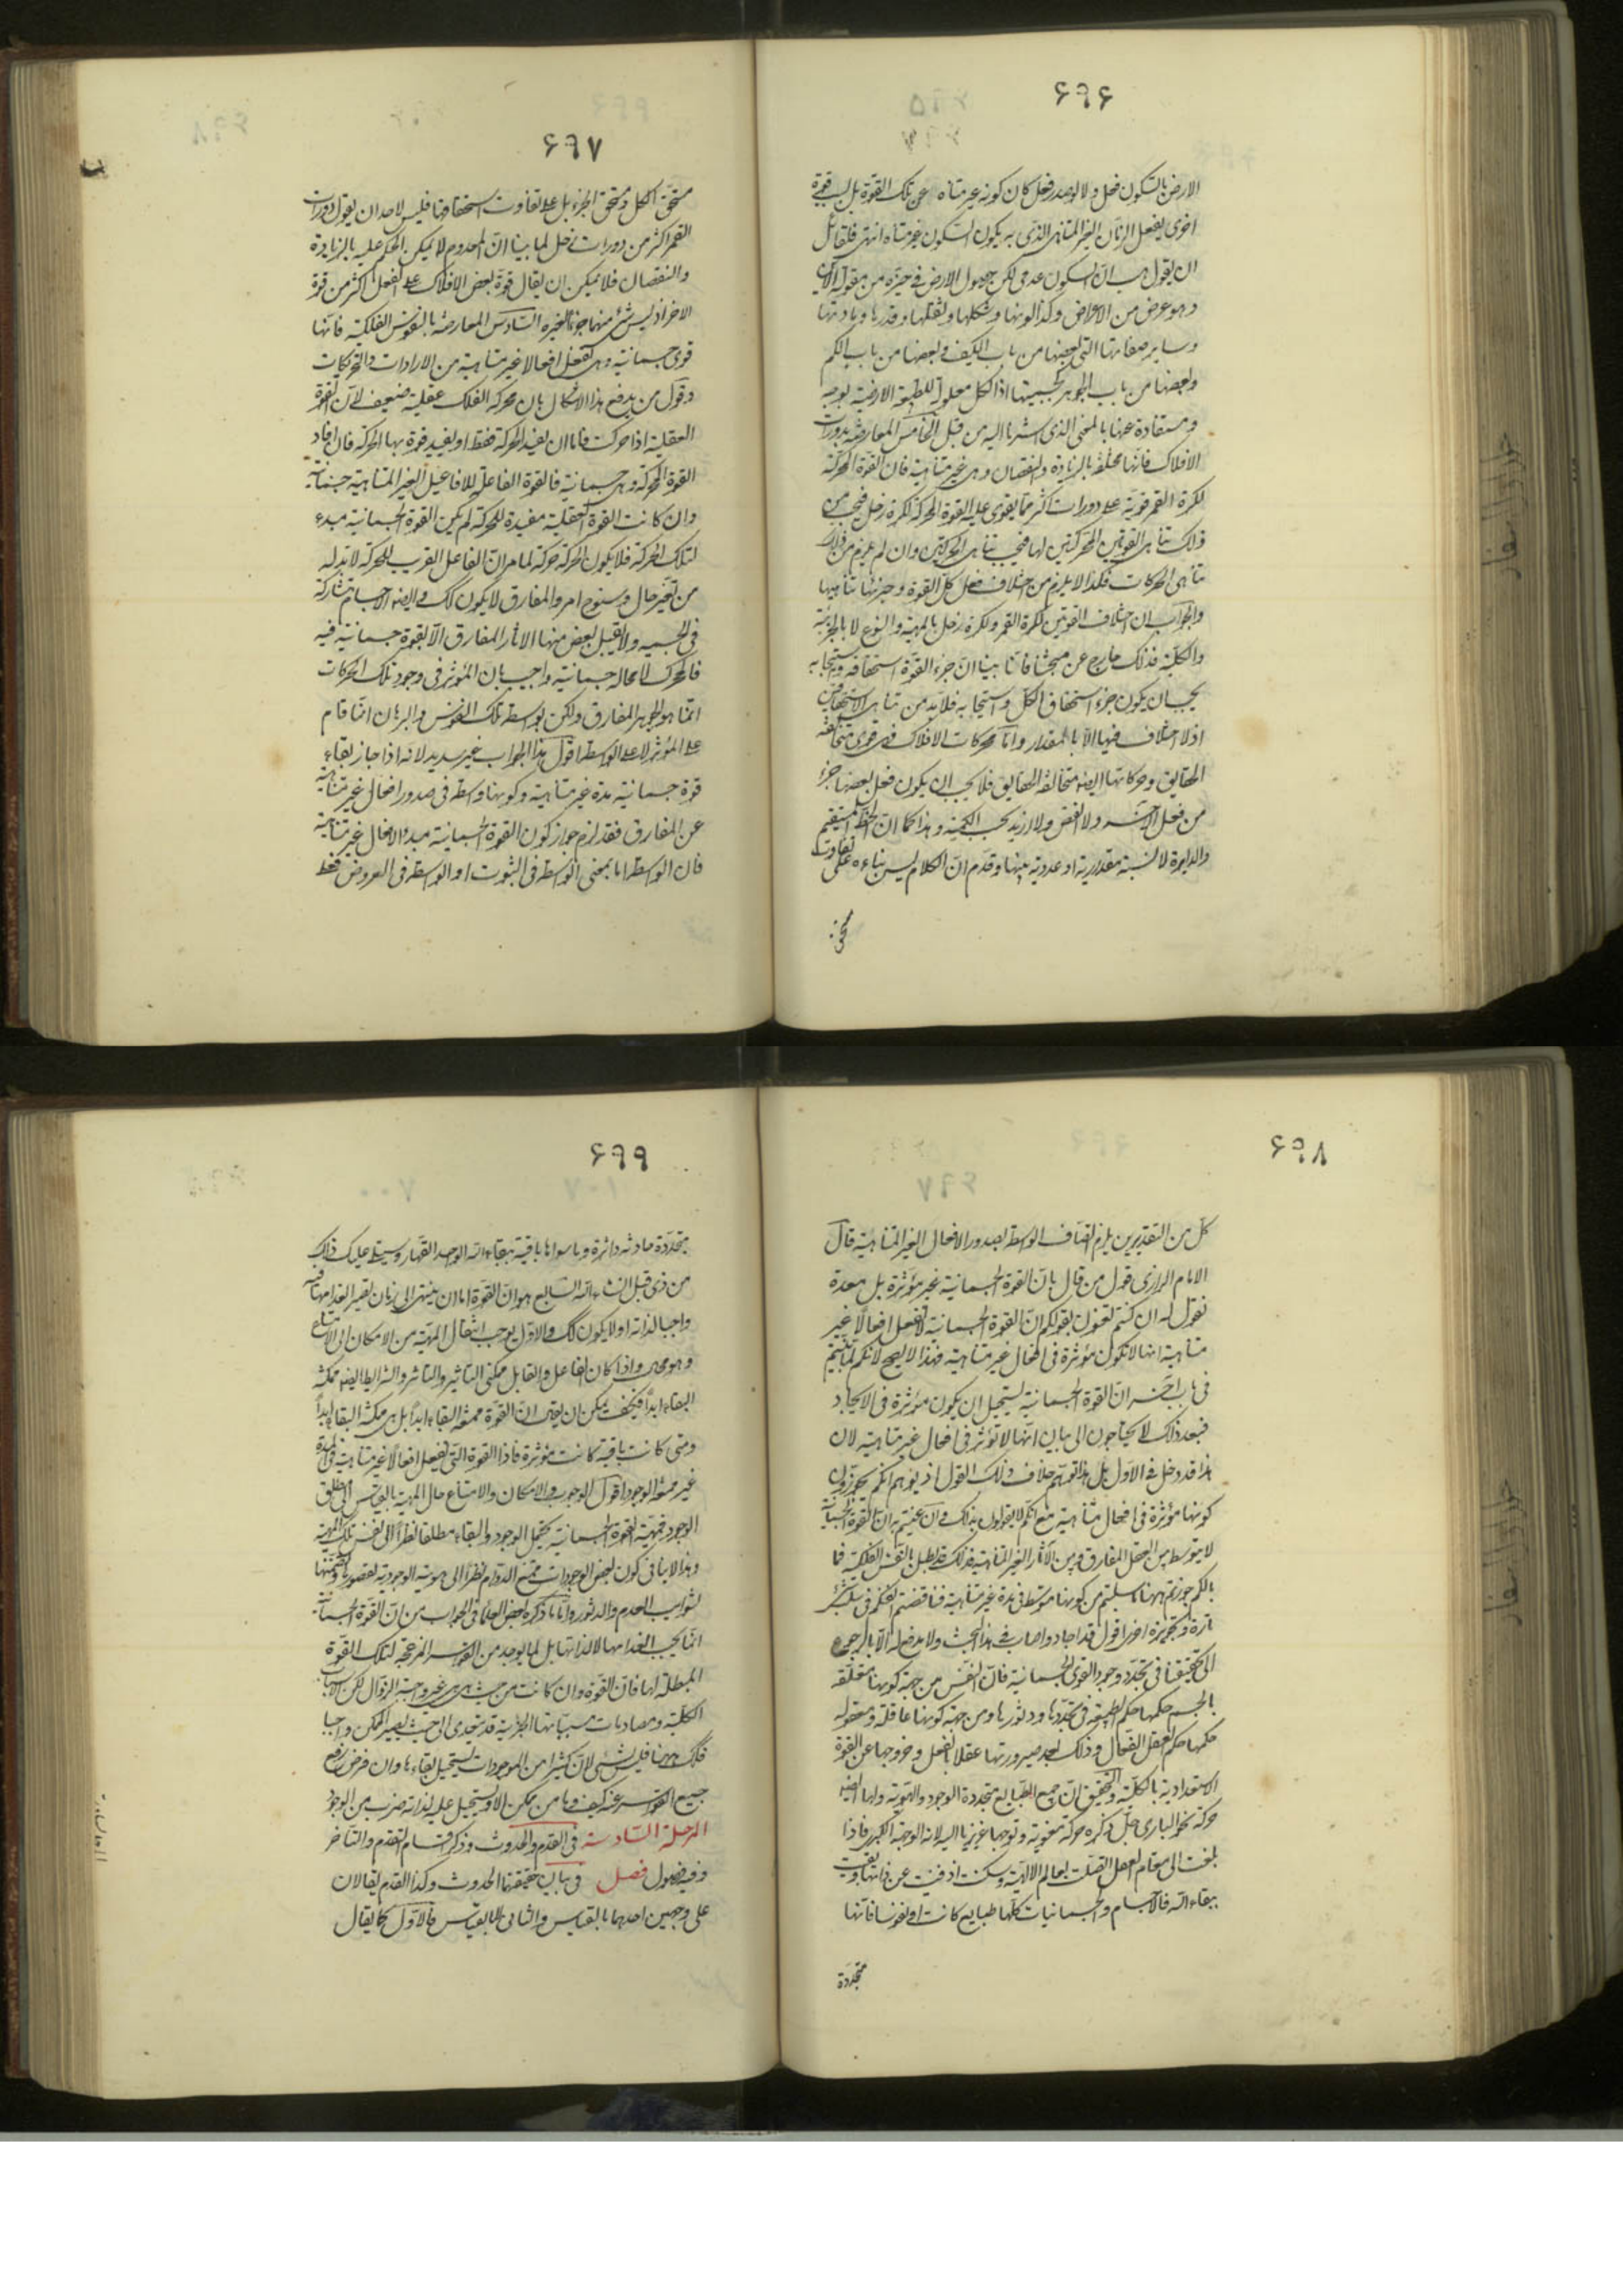 ۶۹۶
الارض بالسكون فعل ولا لوصدر فعل كان كونه غير متناه عن تلك القوة بل لسبب قوة
اخرى يفعل الزمان الغير المتناهى الذى به يكون السكون غير متناه انتهى فلقائل
ان يقول هب ان السكون عدمى لكن حصول الارض فى حيزه من مقولة الاين
وهو عرض من الاعراض وكذا لونها وشكلها وثقلها وقدرها ومادتها
وساير صفاتها التى بعضها من باب الكيف وبعضها من باب الكم
وبعضها من باب الجوهر كجسميتها اذ الكل معلولة للطبيعة الارضية بوجه
ومستفادة عنها بالمعنى الذى اشرنا اليه من قبل الخامس المعارضة بدورات
الافلاك فانها مختلفة بالزيادة والنقصان وهى غير متناهية فان القوة المحركة
لكرة القمر قوية على دورات اكثر مما يقوى عليه القوة المحركة لكرة زحل فيجب من
ذلك تناهى القوتين المحركتين لها فيجب تناهى الحركتين وان لم يلزم من ذلك
تناهى الحركات فكذا لا يلزم من اختلاف فعل كل القوة وجزئها تناهيها
والجواب ان اختلاف القوتين لكرة القمر ولكرة زحل بالمهية والنوع لا بالجزئية
والكلية فذلك خارج عن مبحثنا فانا بينا ان جزء القوة استحقاقه واستيجابه
يجب ان يكون جزء استحقاق الكل واستيجابه فلابد من تناهى الاستحقاقين
اذ لا اختلاف فيها الا بالمقدار واما محركات الافلاك فهى قوى متخالفة
الحقايق وحركاتها ايضا متخالفة الحقايق فلا يجب ان يكون فعل بعضها جزء
من فعل آخر ولا انقص ولا ازيد بحسب الكمية وهذا كما ان الخط المستقيم
والدايرة لا نسبة مقدارية او عددية بينهما وقدم ان الكلام ليس بناءه على تفاوت
مستحق
۶۹۷
مستحق الكل ومستحق الجزء بل على تفاوت استحقاقهما فليس لاحد ان يقول دورات
القمر اكثر من دورات زحل لما بينا ان المعدوم لا يمكن الحكم عليه بالزيادة
والنقصان فلا يمكن ان يقال قوة بعض الافلاك على الفعل اكثر من قوة
الاخر اذ ليس شئ منهما جزءا لغيره السادس المعارضة بالنفوس الفلكية فانها
قوى جسمانية وهى تفعل افعالا غير متناهية من الارادات والتحريكات
وقول من يدفع هذا الاشكال بان محركة الفلك عقلية ضعيف لان القوة
العقلية اذا حركت فاما ان يفيد الحركة فقط او يفيد قوة بها الحركة فان افاد
القوة المحركة وهى جسمانية فالقوة الفاعلة للافاعيل الغير المتناهية جسمانية
وان كانت القوة العقلية مفيدة للحركة لم يكن القوة الجسمانية مبدء
لتلك الحركة فلا يكون الحركة حركة لما مر ان الفاعل القريب للحركة لابد له
من تغير حال وسنوح امر والمفارق لا يكون كك وايضا الاجسام متشاركة
فى الجسمية ولا يقبل بعض منها الاثار المفارق الا بقوة جسمانية فيه
فالمحرك لا محالة جسمانية واجيب بان المؤثر فى وجود تلك الحركات
انما هو الجوهر المفارق ولكن بواسطة تلك النفوس والبرهان انما قام
على المؤثر لا على الواسطة اقول هذا الجواب غير سديد لانه اذا جاز بقاء
قوة جسمانية مدة غير متناهية وكونها واسطة فى صدور افعال غير متناهية
عن المفارق فقد لزم جواز كون القوة الجسمانية مبدء الافعال غير متناهية
فان الواسطة اما بمعنى الواسطة فى الثبوت او الواسطة فى العروض فقط
۶۹۸
كل من التقديرين يلزم اتصاف الواسطة بصدور الافعال الغير المتناهية قال
الامام الرازى قول من قال بان القوة الجسمانية غير مؤثرة بل معدة
نقول له ان كنتم تعنون بقولكم ان القوة الجسمانية لا تفعل افعالا غير
متناهية انها لا تكون مؤثرة فى افعال غير متناهية فهذا لا يصح لانكم لما بينتم
فى باب آخر ان القوة الجسمانية يستحيل ان يكون مؤثرة فى الايجاد
فبعد ذلك لا يحتاجون الى بيان انها لا تؤثر فى افعال غير متناهية لان
هذا قد دخل فى الاول بل هذا توهم خلاف ذلك القول اذ يوهم انكم تجوزون
كونها مؤثرة فى افعال متناهية مع انكم لا تقولون بذلك وان عنيتم به ان القوة الجسمانية
لا يتوسط بين العقل المفارق وبين الآثار الغير المتناهية فذلك قد بطل بالنفس الفلكية فما
بالكم جوزتم ههنا ما سلبتم من كونها متوسطة فى مدة غير متناهية فناقضتم
تارة وتجويزه اخرى اقول قد اجاد واصاب فى هذا البحث ولا مدفع له الا بالرجوع
الى تحقيقنا فى تجدد وجود القوى الجسمانية فان النفس من جهة كونها متعلقة
بالجسم حكمها حكم الطبيعة فى تجددها ودثورها ومن جهة كونها عاقلة ومعقولة
حكمها حكم العقل الفعال وذلك بعد صيرورتها عقلا بالفعل وخروجها عن القوة
الاستعدادية بالكلية والتحقيق ان جميع الطبايع متجددة الوجود والهوية ولها ايضا
حركة نحو البارى جل ذكره حركة معنوية وتوجها غريزيا اليه لانه الوجهة الكبرى فاذا
بلغت الى مقام العقل اتصلت بعالم الالهية وسكنت اذ فنيت عن ذاتها وبقيت
ببقاء الله فالاجسام والجسمانيات كلها طبايع كانت او نفوسا فانها
متجددة
۶۹۹
متجددة حادثة داثرة وما سواها باقية ببقاء الله الواحد القهار وسيتلى عليك ذلك
من ذى قبل انشاء الله السابع هو ان القوة اما ان ينتهى الى زمان تصير انعدامها فيه
واجبا لذاته او لا يكون كك والاول يوجب انتقال المهية من الامكان الى الامتناع
وهو محال واذا كان الفاعل والقابل ممكنى التاثير والتاثر والشرايط ايضا ممكنة
البقاء ابدا فكيف يمكن ان يقال ان القوة ممتنعة البقاء ابدا بل هى ممكنة البقاء ابدا
ومتى كانت باقية كانت مؤثرة فاذا القوة التى تفعل افعالا غير متناهية فى المدة
غير ممتنعة الوجود اقول الوجوب والامكان والامتناع حال المهية بالقياس الى مطلق
الوجود فمهية القوة الجسمانية يحتمل الوجود والبقاء مطلقا نظرا الى نفس تلك المهية
وهذا لا ينافى كون بعض الوجودات ممتنع الدوام نظرا الى هويته الوجودية لقصورها وتضمنها
لشوايب العدم والدثور واما ما ذكره بعض العلماء فى الجواب من ان القوة الجسمانية
انما يجب انعدامها لا لذاتها بل لما يوجد من القواسر المزعجة لتلك القوة
المبطلة لها فان القوة وان كانت من حيث هى هى غير واجبة الزوال لكن الاسباب
الكلية ومصادمات مسبباتها الجزئية قد يتعدى الى حيث يصير الممكن واجبا
فكك ههنا فليس بشئ لان كثيرا من الموجودات يستحيل بقاءها وان فرض رفع
جميع القواسر عنه كيف وما من ممكن الا ويستحيل عليه لذاته ضرب من الوجود
المرحلة السادسة فى القدم والحدوث وذكر اقسام التقدم والتاخر
وفيه فصول فصل فى بيان حقيقتها الحدوث وكذا القدم يقالان
على وجهين احدهما بالقياس والثانى لا بالقياس فالاول كما يقال